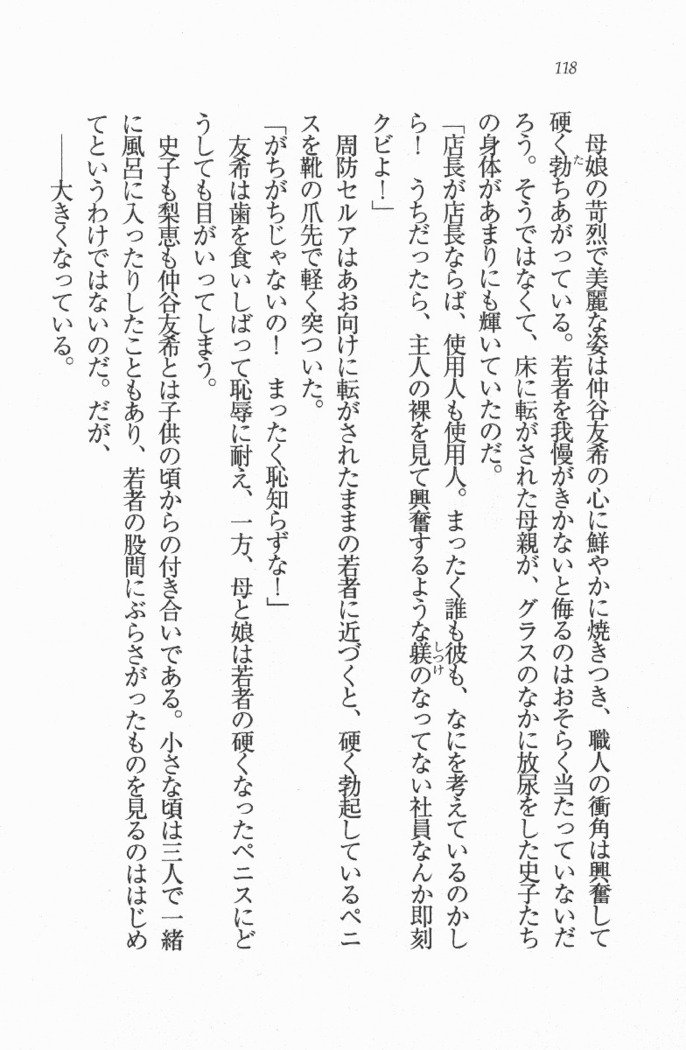 118
母娘の苛烈で美麗な姿は仲谷友希の心に鮮やかに焼きつき、職人の衝角は興奮して
硬く勃ちあがっている。若者を我慢がきかないと侮るのはおそらく当たっていないだ
ろう。そうではなくて、床に転がされた母親が、グラスのなかに放尿をした史子たち
の身体があまりにも輝いていたのだ。
「店長が店長ならば、使用人も使用人。まったく誰も彼も、なにを考えているのかし
ら！　うちだったら、主人の裸を見て興奮するような躾のなってない社員なんか即刻
クビよ！」
周防セルアはあお向けに転がされたままの若者に近づくと、硬く勃起しているペニ
スを靴の爪先で軽く突ついた。
「がちがちじゃないの！　まったく恥知らずな！」
友希は歯を食いしばって恥辱に耐え、一方、母と娘は若者の硬くなったペニスにど
うしても目がいってしまう。
史子も梨恵も仲谷友希とは子供の頃からの付き合いである。小さな頃は三人で一緒
に風呂に入ったりしたこともあり、若者の股間にぶらさがったものを見るのははじめ
てというわけではないのだ。だが、
――大きくなっている。